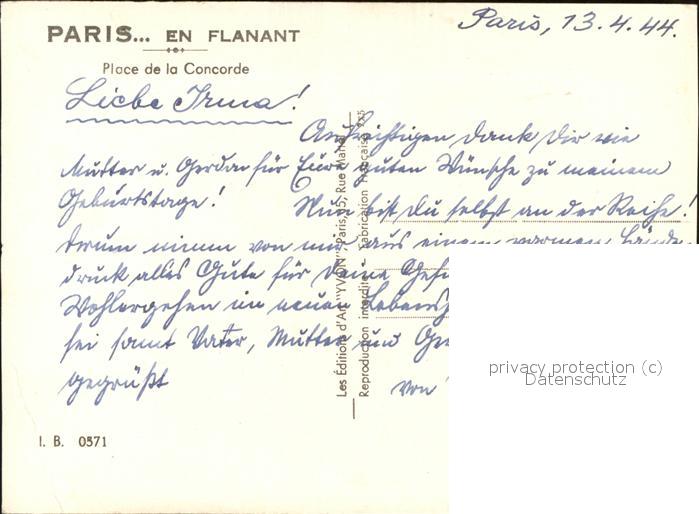 PARIS... EN FLANANT
Place de la Concorde
Paris, 13.4.44.
Liebe Irma!
Aufrichtigen Dank Dir wie
Mutter u. Gerda für Eure guten Wünsche zu meinem
Geburtstage! Nun bist Du selbst an der Reihe!
Drum nimm von mir aus einem warmen Hände-
druck alles Gute für Deine
Wohlergehen im neuen
sei samt Vater, Mutter und
gegrüßt
von
Les Éditions d'Art "YVON", Paris, 15, Rue Martel
Reproduction interdite - Fabrication Française
I. B. 0571
privacy protection (c)
Datenschutz